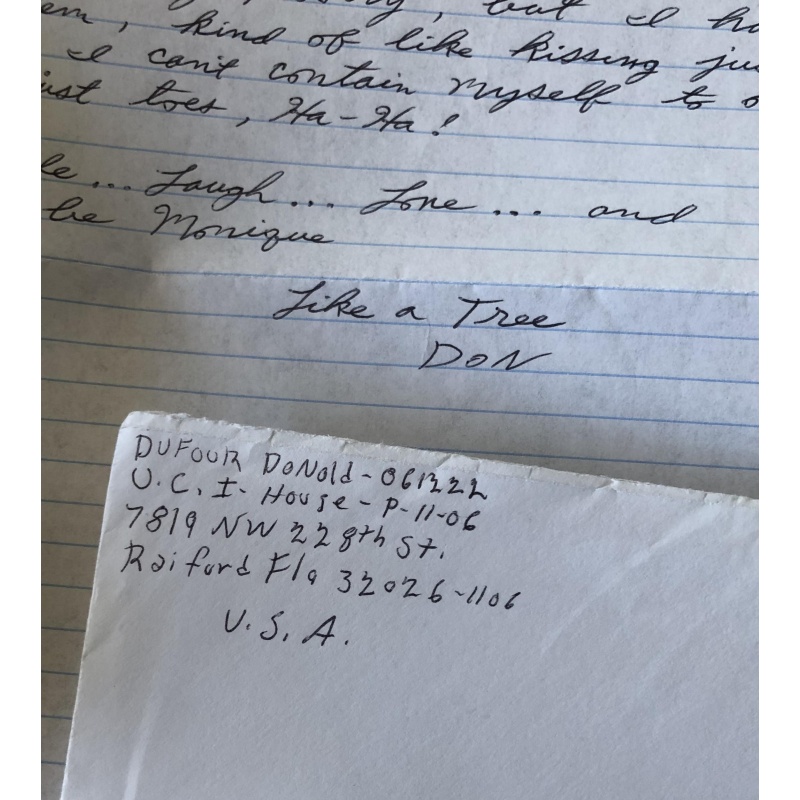 but I
em, kind of like kissing ju
I can't contain myself to
ust toes, Ha-Ha!
le... Laugh... Love... and
be Monique
Like a Tree
DON
DUFOUR DONald-061222
U.C.I- House-P-11-06
7819 NW 228th St.
Raiford Fla 32026-1106
U.S.A.